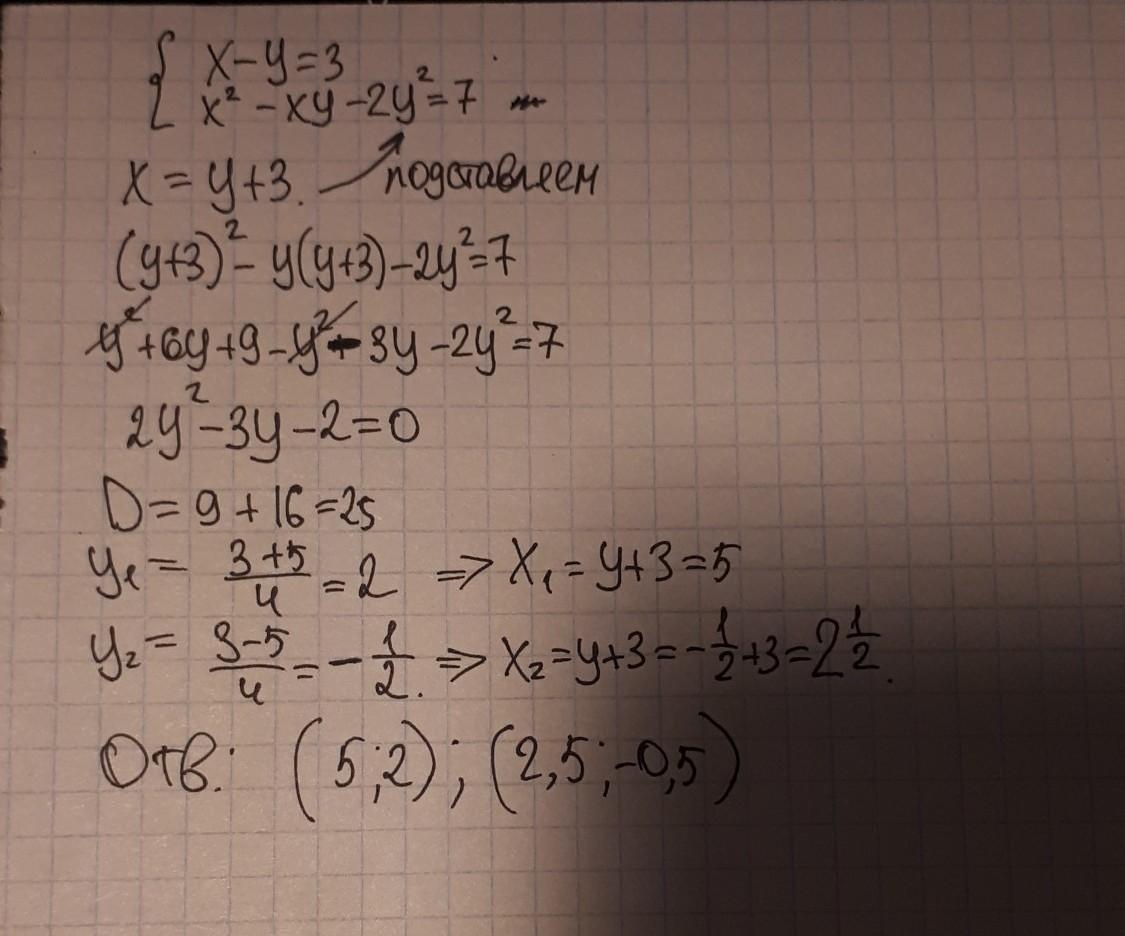 { x-y=3
x² - xy - 2y² = 7
x = y+3. подставляем
(y+3)² - y(y+3) - 2y² = 7
y² + 6y + 9 - y² - 3y - 2y² = 7
2y² - 3y - 2 = 0
D = 9 + 16 = 25
y₁ = (3+5)/4 = 2 ⇒ x₁ = y+3 = 5
y₂ = (3-5)/4 = -1/2. ⇒ x₂ = y+3 = -1/2 + 3 = 2 1/2.
Отв: (5;2); (2,5;-0,5)